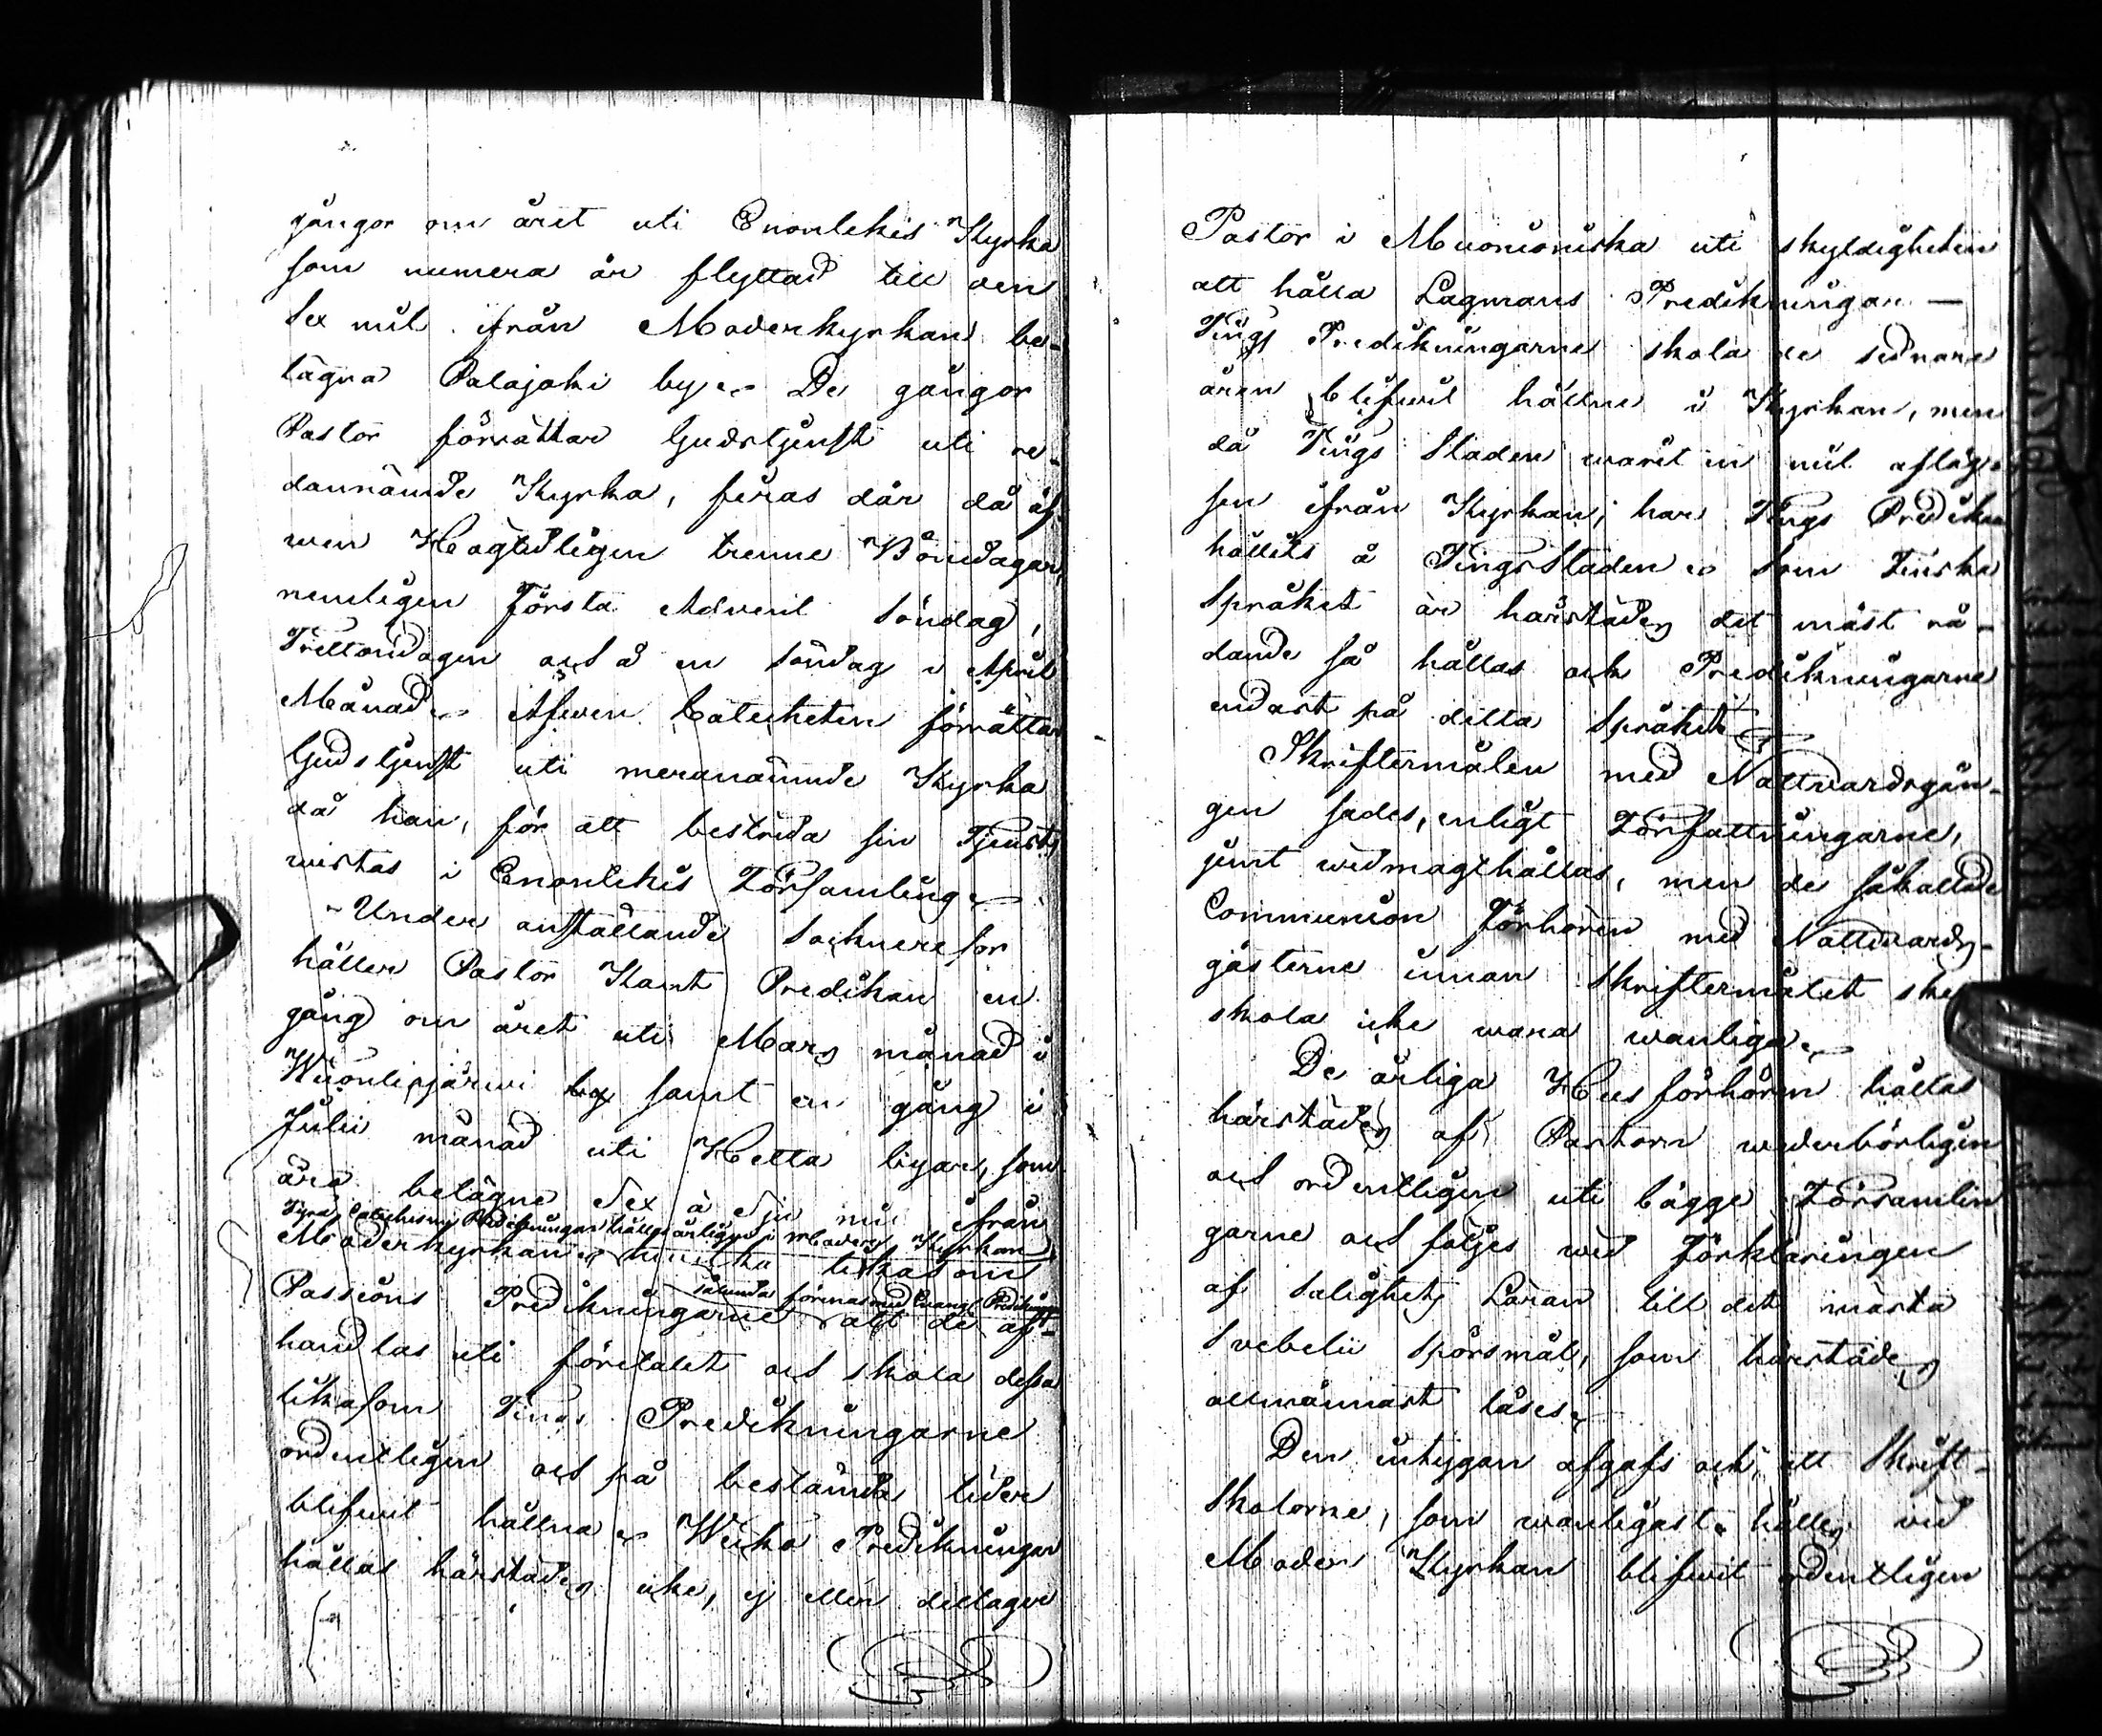 gångor om året uti Enontekis Kyrka
som numera är flyttad till den
Sex mil ifrån Moderkyrkan be-
lägna Palajoki by. De gångor
Pastor förrättar Gudstjenst uti re-
dannämde Kyrka, firas där då äf-
wen Högtidligen trenne Bönedagar,
nemligen Första Advent Söndag,
Trettondagen och å en Söndag i April
Månad. Äfwen Catecheten förrättar
Gudstjenst uti meranämnde Kyrka
då han, för att bestrida sin Tjenst,
wistas i Enontekis Församling.
Under anställande Sockneresor
håller Pastor Samt Predikan en
gång om året uti Mars månad i
Wuontisjärwi by samt en gång i
Julii månad uti Hetta byar, som
äro belägne Sex à Sju mil ifrån
Fyra Catechismi Predikningar hållas årligen i Moder Kyrkan
Moderkyrkan likasom
sålunda förenas med Evangl. Predikningar
Passions Predikningarne att de af-
handlas uti företalet och skola dessa
likasom Tings Predikningarne
ordentligen och på bestämda tider
blifwit hållna. Wicko Predikningar
hållas härstädes icke, ej eller deltager
Pastor i Muonioniska uti skyldigheten
att hålla Lagmans Predikningar —
Tings Predikningarne skola de sednare
åren blifwit hållne i Kyrkan, men
då Tings Staden warit en mil afläg-
sen ifrån Kyrkan, har Tings Predikan
hållits å TingsStaden. Som Finska
Språket är härstädes det mäst rå-
dande så hållas ock Predikningarne
endast på detta Språket.
Skriftermålen med Nattvardsgån-
gen sades, enligt Författningarne,
jemt widmagthållas, men de såkallade
Communion Förhören med Nattwards-
gästerne innan Skriftermålet sker
skola icke wara wanliga.
De årliga Husförhören hållas
härstädes af Pastorn wederbörligen
och ordentligen uti bägge Församlin
garne och följes wid Förklaringen
af Salighets Läran till det mästa
Svebelii Spörsmål, som härstädes
allmännast läses.
Den intygan afgafs ock, att Skrift-
Skolorne, som wanligast hålles vid
Moder Kyrkan blifwit ordentligen